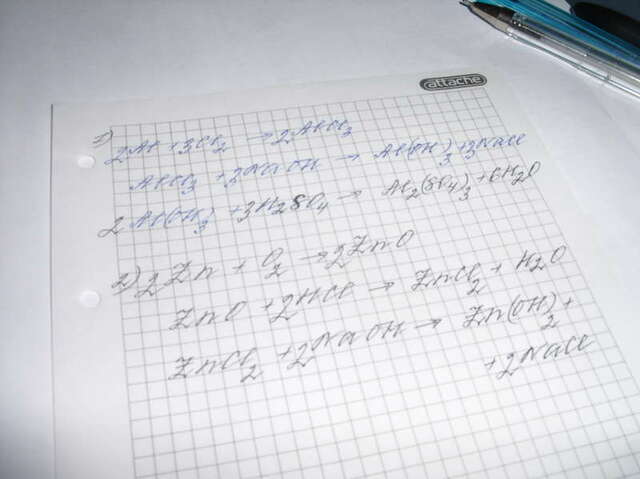 attache
1)
2Al + 3Cl₂ → 2AlCl₃
AlCl₃ + 3NaOH → Al(OH)₃ + 3NaCl
2Al(OH)₃ + 3H₂SO₄ → Al₂(SO₄)₃ + 6H₂O
2) 2Zn + O₂ → 2ZnO
ZnO + 2HCl → ZnCl₂ + H₂O
ZnCl₂ + 2NaOH → Zn(OH)₂ +
+ 2NaCl